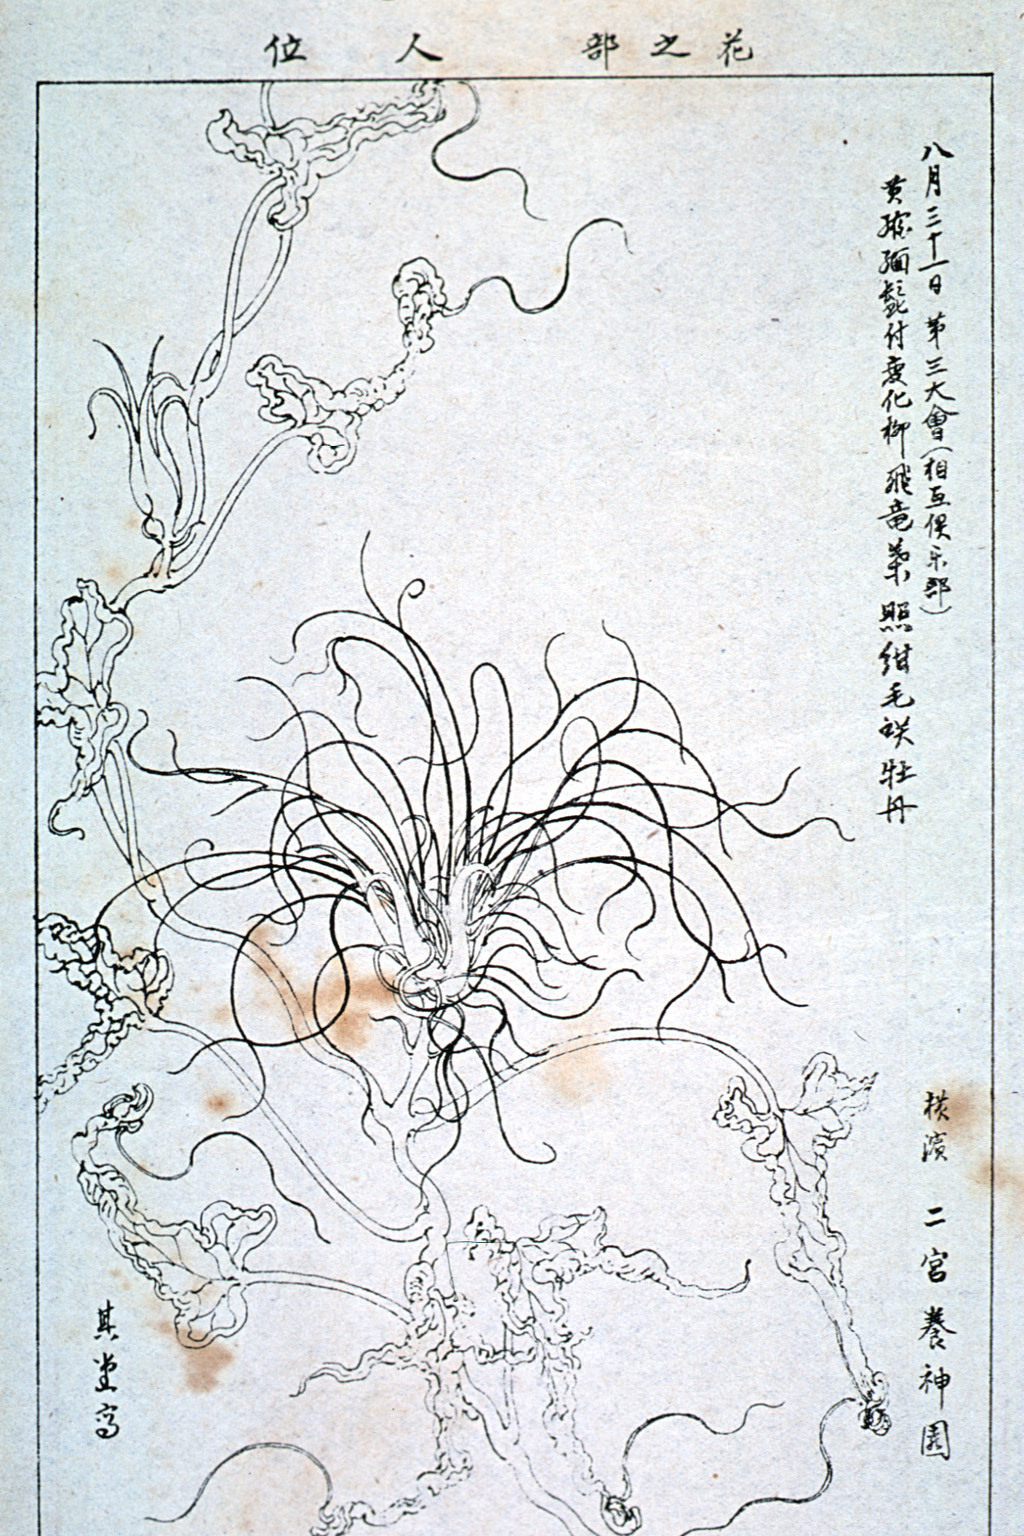 花之部　人位
八月三十一日　第三大會(相互俱乐部)
黄 緬髭付変化柳飛竜葉 照紺毛 牡丹
横濱　二宮養神園
其堂写